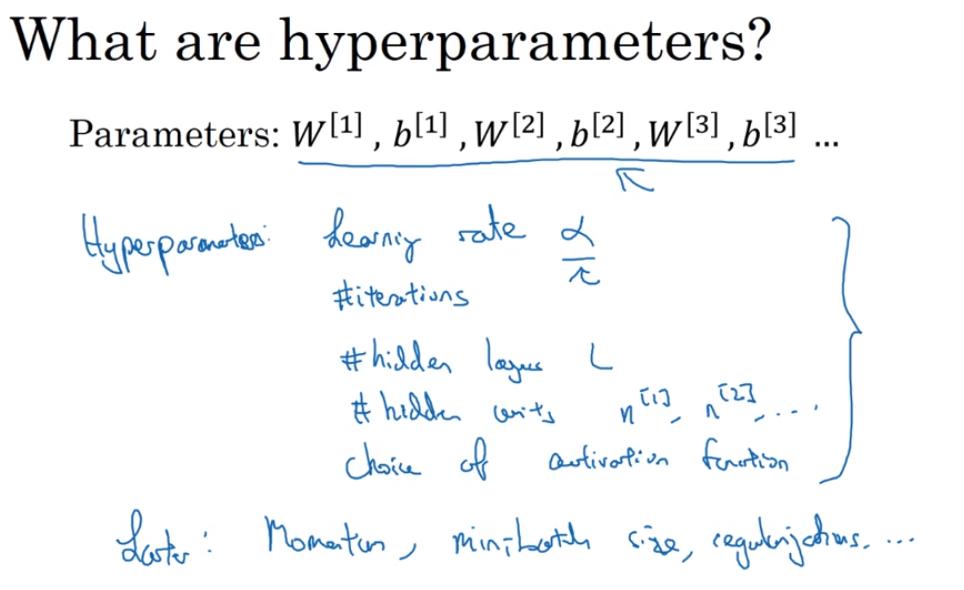 What are hyperparameters?
Parameters: W[1] , b[1] , W[2] , b[2] , W[3] , b[3] ...
Hyperparameters: Learning rate α
#iterations
#hidden layers L
# hidden units n[1], n[2], ....
choice of activation function
Later: Momentum, minibatch size, regularizations. ...